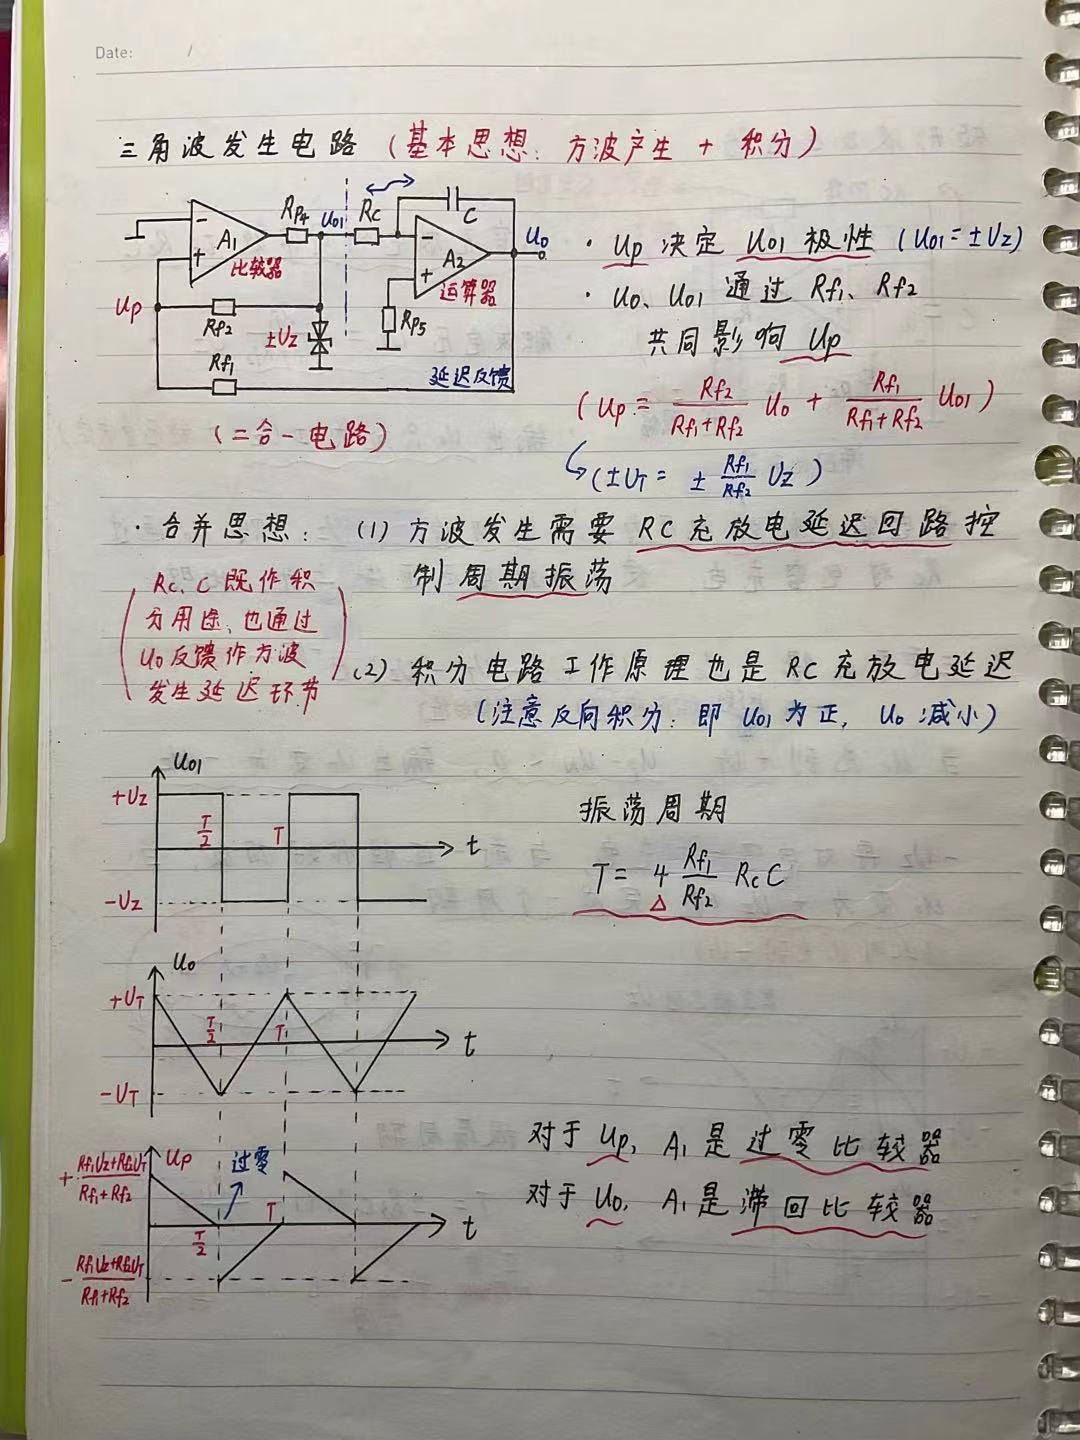 Date: /
三角波发生电路 (基本思想: 方波产生 + 积分)
Rp4 Uo1 Rc C
- A1 + 比较器
- A2 + 运算器
Uo
Up Rf2 ±Uz Rp5
Rf1 延迟反馈
(二合一电路)
· Up 决定 Uo1 极性 (Uo1 = ±Uz)
· Uo、Uo1 通过 Rf1、Rf2
共同影响 Up
(Up = Rf2/(Rf1+Rf2) Uo + Rf1/(Rf1+Rf2) Uo1)
(±UT = ± Rf1/Rf2 Uz)
· 合并思想: (1) 方波发生需要 RC充放电延迟回路控
制周期振荡
(Rc、C 既作积
分用途、也通过
Uo反馈作方波
发生延迟环节)
(2) 积分电路工作原理也是 RC充放电延迟
(注意反向积分: 即 Uo1 为正, Uo 减小)
Uo1
+Uz
T/2 T t
-Uz
振荡周期
T = 4 Rf1/Rf2 RcC
Δ
Uo
+UT
T/2 T t
-UT
Up 过零
+ (Rf1Uz+Rf2UT)/(Rf1+Rf2)
T/2 T t
- (Rf1Uz+Rf2UT)/(Rf1+Rf2)
对于 Up, A1是过零比较器
对于 Uo, A1是滞回比较器